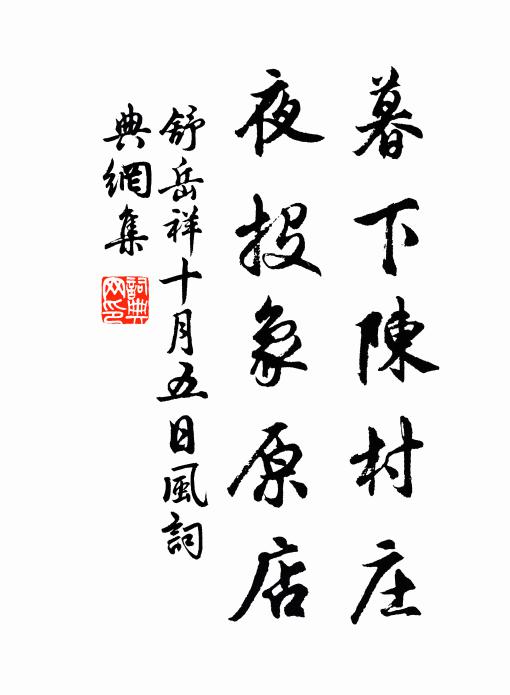 暮下陳村庄
夜投象原店
舒岳祥十月五日風詞
典網集
詞典
网印